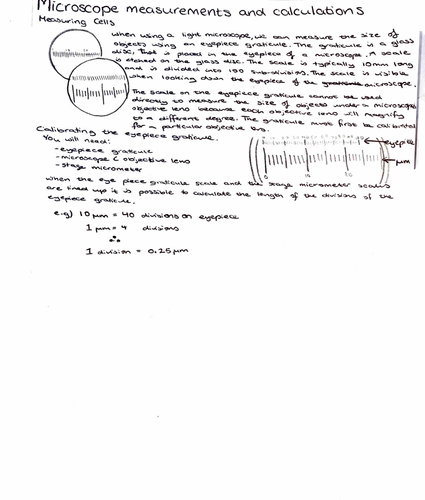 Microscope measurements and calculations
Measuring Cells
When using a light microscope, we can measure the size of
objects using an eyepiece graticule. The graticule is a glass
disc, that is placed in the eyepiece of a microscope. A scale
is etched on the glass disc. The scale is typically 10mm long
and is divided into 100 sub-divisions. The scale is visible
when looking down the eyepiece of the microscope.
The scale on the eyepiece graticule cannot be used
directly to measure the size of objects under a microscope
objective lens because each objective lens will magnify
to a different degree. The graticule must first be calibrated
for a particular objective lens.
Calibrating the eyepiece graticule.
You will need:
- eyepiece graticule
- microscope objective lens
- stage micrometer
eyepiece
μm
0 10 20
When the eye piece graticule scale and the stage micrometer scales
are lined up it is possible to calculate the length of the divisions of the
eyepiece graticule.
e.g) 10 μm = 40 divisions on eyepiece
1 μm = 4 divisions
∴
1 division = 0.25 μm